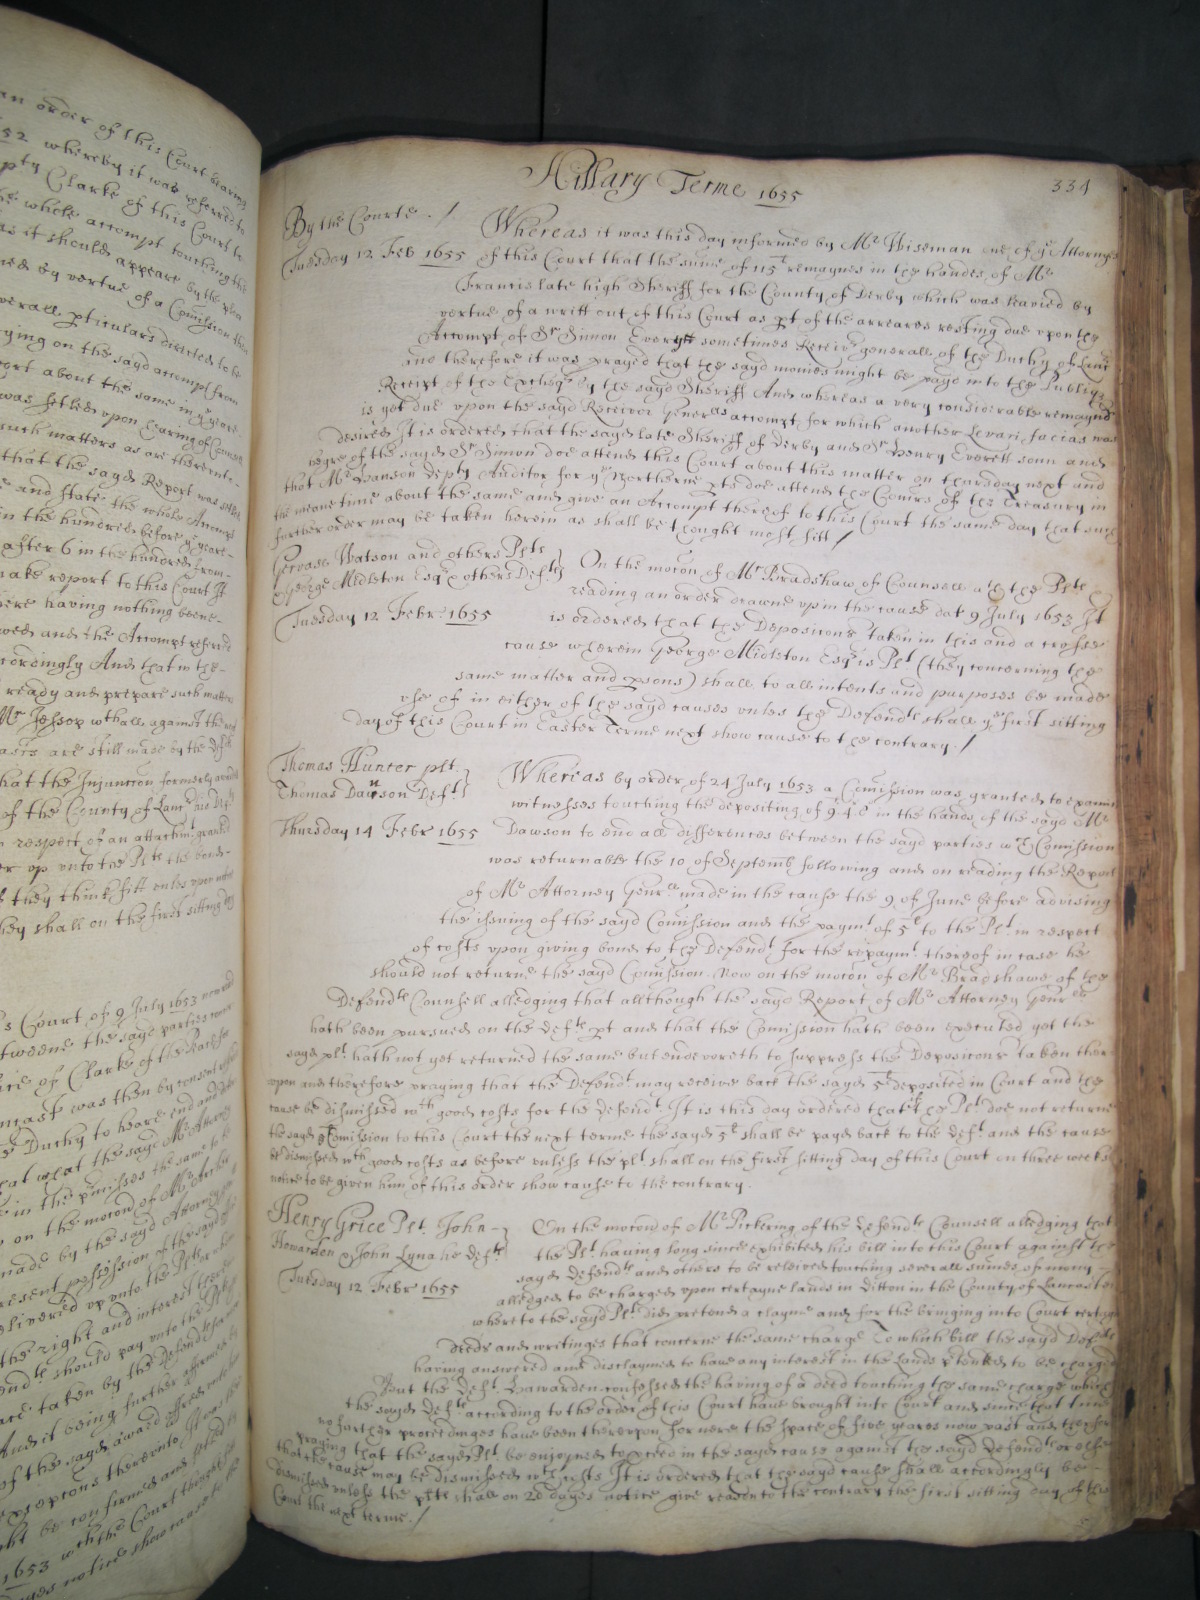 an order of this Court bearing
1652 whereby it was referred to
Clarke of this Court to
the whole attompt touching the
as it should appeare by the
by vertue of a Comission
severall pticulars directed to be
on the sayd attompt from
report about the same in
was setled upon hearing of
such matters as are
that the sayd Report was
and state the whole Attompt
in the hundred before
after 6 in the hundred from
make report to this Court It
having nothing beene
and the Attompt referred
accordingly And that in the
ready and prepare such matters
Mr Jessop against the
are still made by the
that the Injunction formerly
of the County of Lanc
respect of an attachmt granted
up unto the Plts the bond
if they thinke fitt unles upon
they shall on the first sitting day
Court of 9 July 1653
betweene the sayd parties
of Clarke of the
was then by consent
Duchy to heare end and
that what the sayd Mr Attorney
in the pmisses the same to
on the mocon of Mr
made by the sayd Attorney
present possession of the sayd
delivered up unto the Plt
the right and interest
should pay unto the Plt
taken by the Defendt
And it being further affirmed
of the sayd award
excepcons thereunto It was
might be confirmed and
1653 wth the Court thought
dayes notice show cause to
Hillary Terme 1655
334
By the Courte . /
Whereas it was this day informed by Mr Wiseman one of ye Attorneys
Tuesday 12 Feb 1655
of this Court that the sume of 115l remaynes in the handes of Mr
Francis late high Sheriff for the County of Derby which was leavied by
vertue of a writt out of this Court as pt of the arreares resting due upon the
Attompt of Sr Simon Every sometimes Receivr generall of the Duchy of Lanc
and therefore it was prayed that the sayd monies might be payd into the Publiq
Receipt of the Excheqr by the sayd Sheriff And whereas a very considerable remaynd
is yet due upon the sayd Receivor Generalls attompt, for which another Levari facias was
desired It is ordered that the sayd late Sheriff of Derby and Sr Henry Everett sonn and
heyre of the sayd Sr Simon doe attend this Court about this matter on thursday next and
that Mr Dauson depty Auditor for ye Northerne pts doe attend the Comrs of the Treasury in
the meane time about the same and give an Attompt thereof to this Court the same day that such
further order may be taken herein as shall be thought most fitt /
Gervase Watson and others Plts
George Midleton Esqr & others Defts
On the mocon of Mr Bradshaw of Counsell wth the Plts
reading an order drawne up in the cause dat 9 July 1653 It
Tuesday 12 Febr 1655
is ordered that the Deposicons taken in this and a crosse
cause wherein George Midleton Esqr is Plt (they concerning the
same matter and psons) shall to all intents and purposes be made
use of in either of the sayd causes unles the Defendts shall ye first sitting
day of this Court in Easter Terme next show cause to the contrary. /
Thomas Hunter plt.
Thomas Dawson Deft
Whereas by order of 24 July 1653 a Comission was granted to examine
witnesses touching the depositing of 9 4 0 in the hands of the sayd Mr
Thursday 14 Febr 1655
Dawson to end all differences betweene the sayd parties wch Comission
was returnable the 10 of Septemb following and on reading the Report
of Mr Attorney Genrll made in the cause the 9 of June before advising
the issuing of the sayd Comission and the paymt of 5l to the Plt in respect
of costs upon giving bond to the Defendt for the repaymt thereof in case he
should not returne the sayd Comission. Now on the mocon of Mr Bradshawe of the
Defendts Counsell alledging that allthough the sayd Report of Mr Attorney Genrll
hath been pursued on the Defts pt and that the Comission hath been executed yet the
sayd plt hath not yet returned the same but endevoreth to suppress the Deposicons taken ther
upon and therefore praying that the Defendt may receive back the sayd 5l deposited in Court and the
cause be dismissed wth good costs for the Defendt. It is this day ordered that if the Plt doe not returne
the sayd Comission to this Court the next terme the sayd 5l shall be payd back to the Deft and the cause
be dismissed wth good costs as before unless the plt shall on the first sitting day of this Court on three weeks
notice to be given him of this order show cause to the contrary.
Henry Grice Plt. John
Hawarden & John Lynaker Defts
On the mocon of Mr Pickering of the Defendts Counsell alledging that
the Plt having long since exhibited his bill into this Court against the
Tuesday 12 Febr 1655
sayd Defendts and others to be releived touching severall sumes of mony
alledged to be charged upon certayne lands in Ditton in the County of Lancaster
whereto the sayd Plt did pretend a clayme and for the bringing into Court certayne
Deeds and writinges that concerne the same charge To which bill the sayd Defts
having answered and disclaymed to have any interest in the lands ptended to be charged
But the Deft. Hawarden confessed the having of a deed touching the same charge which
the sayd Defts according to the order of this Court have brought into Court and since that time
no farther proceedinges have been thereupon for nere the space of five yeares now past and therefore
praying that the sayd Plt be enjoyned to pceed in the sayd cause against the sayd Defendts or else
that the cause may be dismissed wth costs It is ordered that the sayd cause shall accordingly be
dismissed unlese the plt shall on 20 dayes notice give reason to the contrary the first sitting day of this
Court the next terme. /